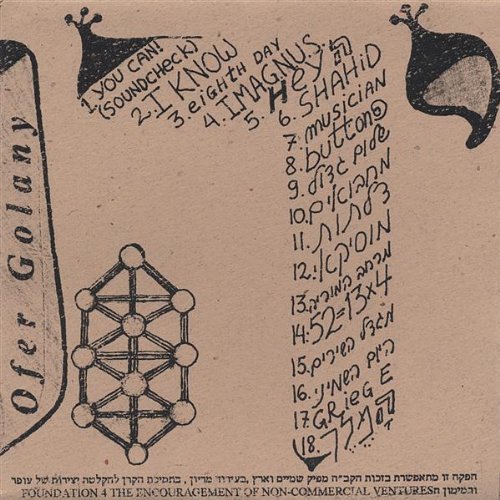 Ofer Golany
1. YOU CAN!
(SOUNDCHECK)
2. I KNOW
3. eiGHTH DAY
4. IMAGNUS
5. Hey
6. SHAHiD
7. musiCiAN
8. button
9. שלום גדול
10. מחבואים
11. דלתות
12. מוסיקאי
13. מרחב המוריה
14. 52=13x4
15. מגדל השירים
16. היום השמיני
17. GRieG E
18. המלך
הפקה זו מתאפשרת בזכות הקב"ה מפיק שמיים וארץ, בעידוד מריון, בתמיכת הקרן להקלטה יצירות של עופר
FOUNDATION 4 THE ENCOURAGEMENT OF NON-COMMERCIAL VENTURES והמימון